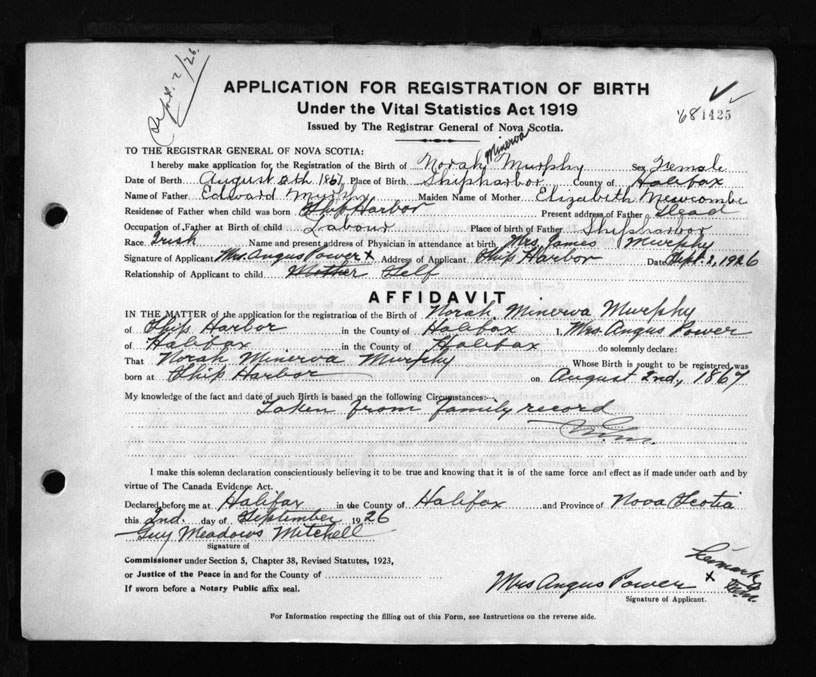 Sept. 2/26.
APPLICATION FOR REGISTRATION OF BIRTH
Under the Vital Statistics Act 1919
'68 1425
Issued by The Registrar General of Nova Scotia.
TO THE REGISTRAR GENERAL OF NOVA SCOTIA:
I hereby make application for the Registration of the Birth of Norah Minerva Murphy Sex Female
Date of Birth August 2th 1867 Place of Birth Shipharbor County of Halifax
Name of Father Edward Murphy Maiden Name of Mother Elizabeth Newcombe
Residence of Father when child was born Ship Harbor Present address of Father Dead
Occupation of Father at Birth of child Labour Place of birth of Father Shipharbor
Race Irish Name and present address of Physician in attendance at birth Mrs. James Murphy
Signature of Applicant Mrs. Angus Power x Address of Applicant Ship Harbor Date Sept. 2, 1926
Relationship of Applicant to child Mother Self
AFFIDAVIT
IN THE MATTER of the application for the registration of the Birth of Norah Minerva Murphy
of Ship Harbor in the County of Halifax I, Mrs. Angus Power
of Halifax in the County of Halifax do solemnly declare:
That Norah Minerva Murphy Whose Birth is sought to be registered was
born at Ship Harbor on August 2nd, 1867
My knowledge of the fact and date of such Birth is based on the following Circumstances:—
Taken from family record
I make this solemn declaration conscientiously believing it to be true and knowing that it is of the same force and effect as if made under oath and by
virtue of The Canada Evidence Act.
Declared before me at Halifax in the County of Halifax and Province of Nova Scotia
this 2nd. day of September 1926
Guy Meadows Mitchell
Signature of
Commissioner under Section 5, Chapter 38, Revised Statutes, 1923,
or Justice of the Peace in and for the County of
If sworn before a Notary Public affix seal.
Mrs Angus Power x
Signature of Applicant.
For Information respecting the filling out of this Form, see Instructions on the reverse side.